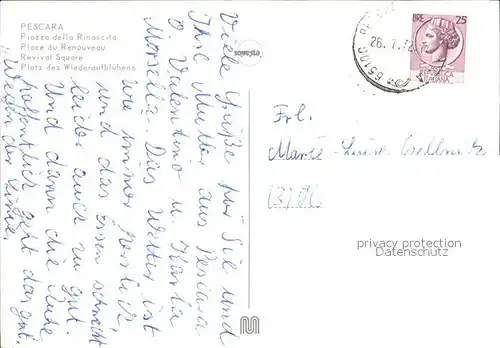 PESCARA
Piazza della Rinascita
Place du Renouveau
Revival Square
Platz des Wiederaufblühens
sovesta
Viele Grüße für Sie und
Ihre Mutter aus Pescara
v. Valentino u. Karla
Marsella. Das Wetter ist
wie immer herrlich
und das Essen schmeckt
leider auch zu gut.
Und dann die Ruhe,
hoffentlich geht das gut.
"Wegen der Linie."
LIRE 25
26.7.72
65100
ITALIANA
Frl.
Marie-Luise
privacy protection
Datenschutz